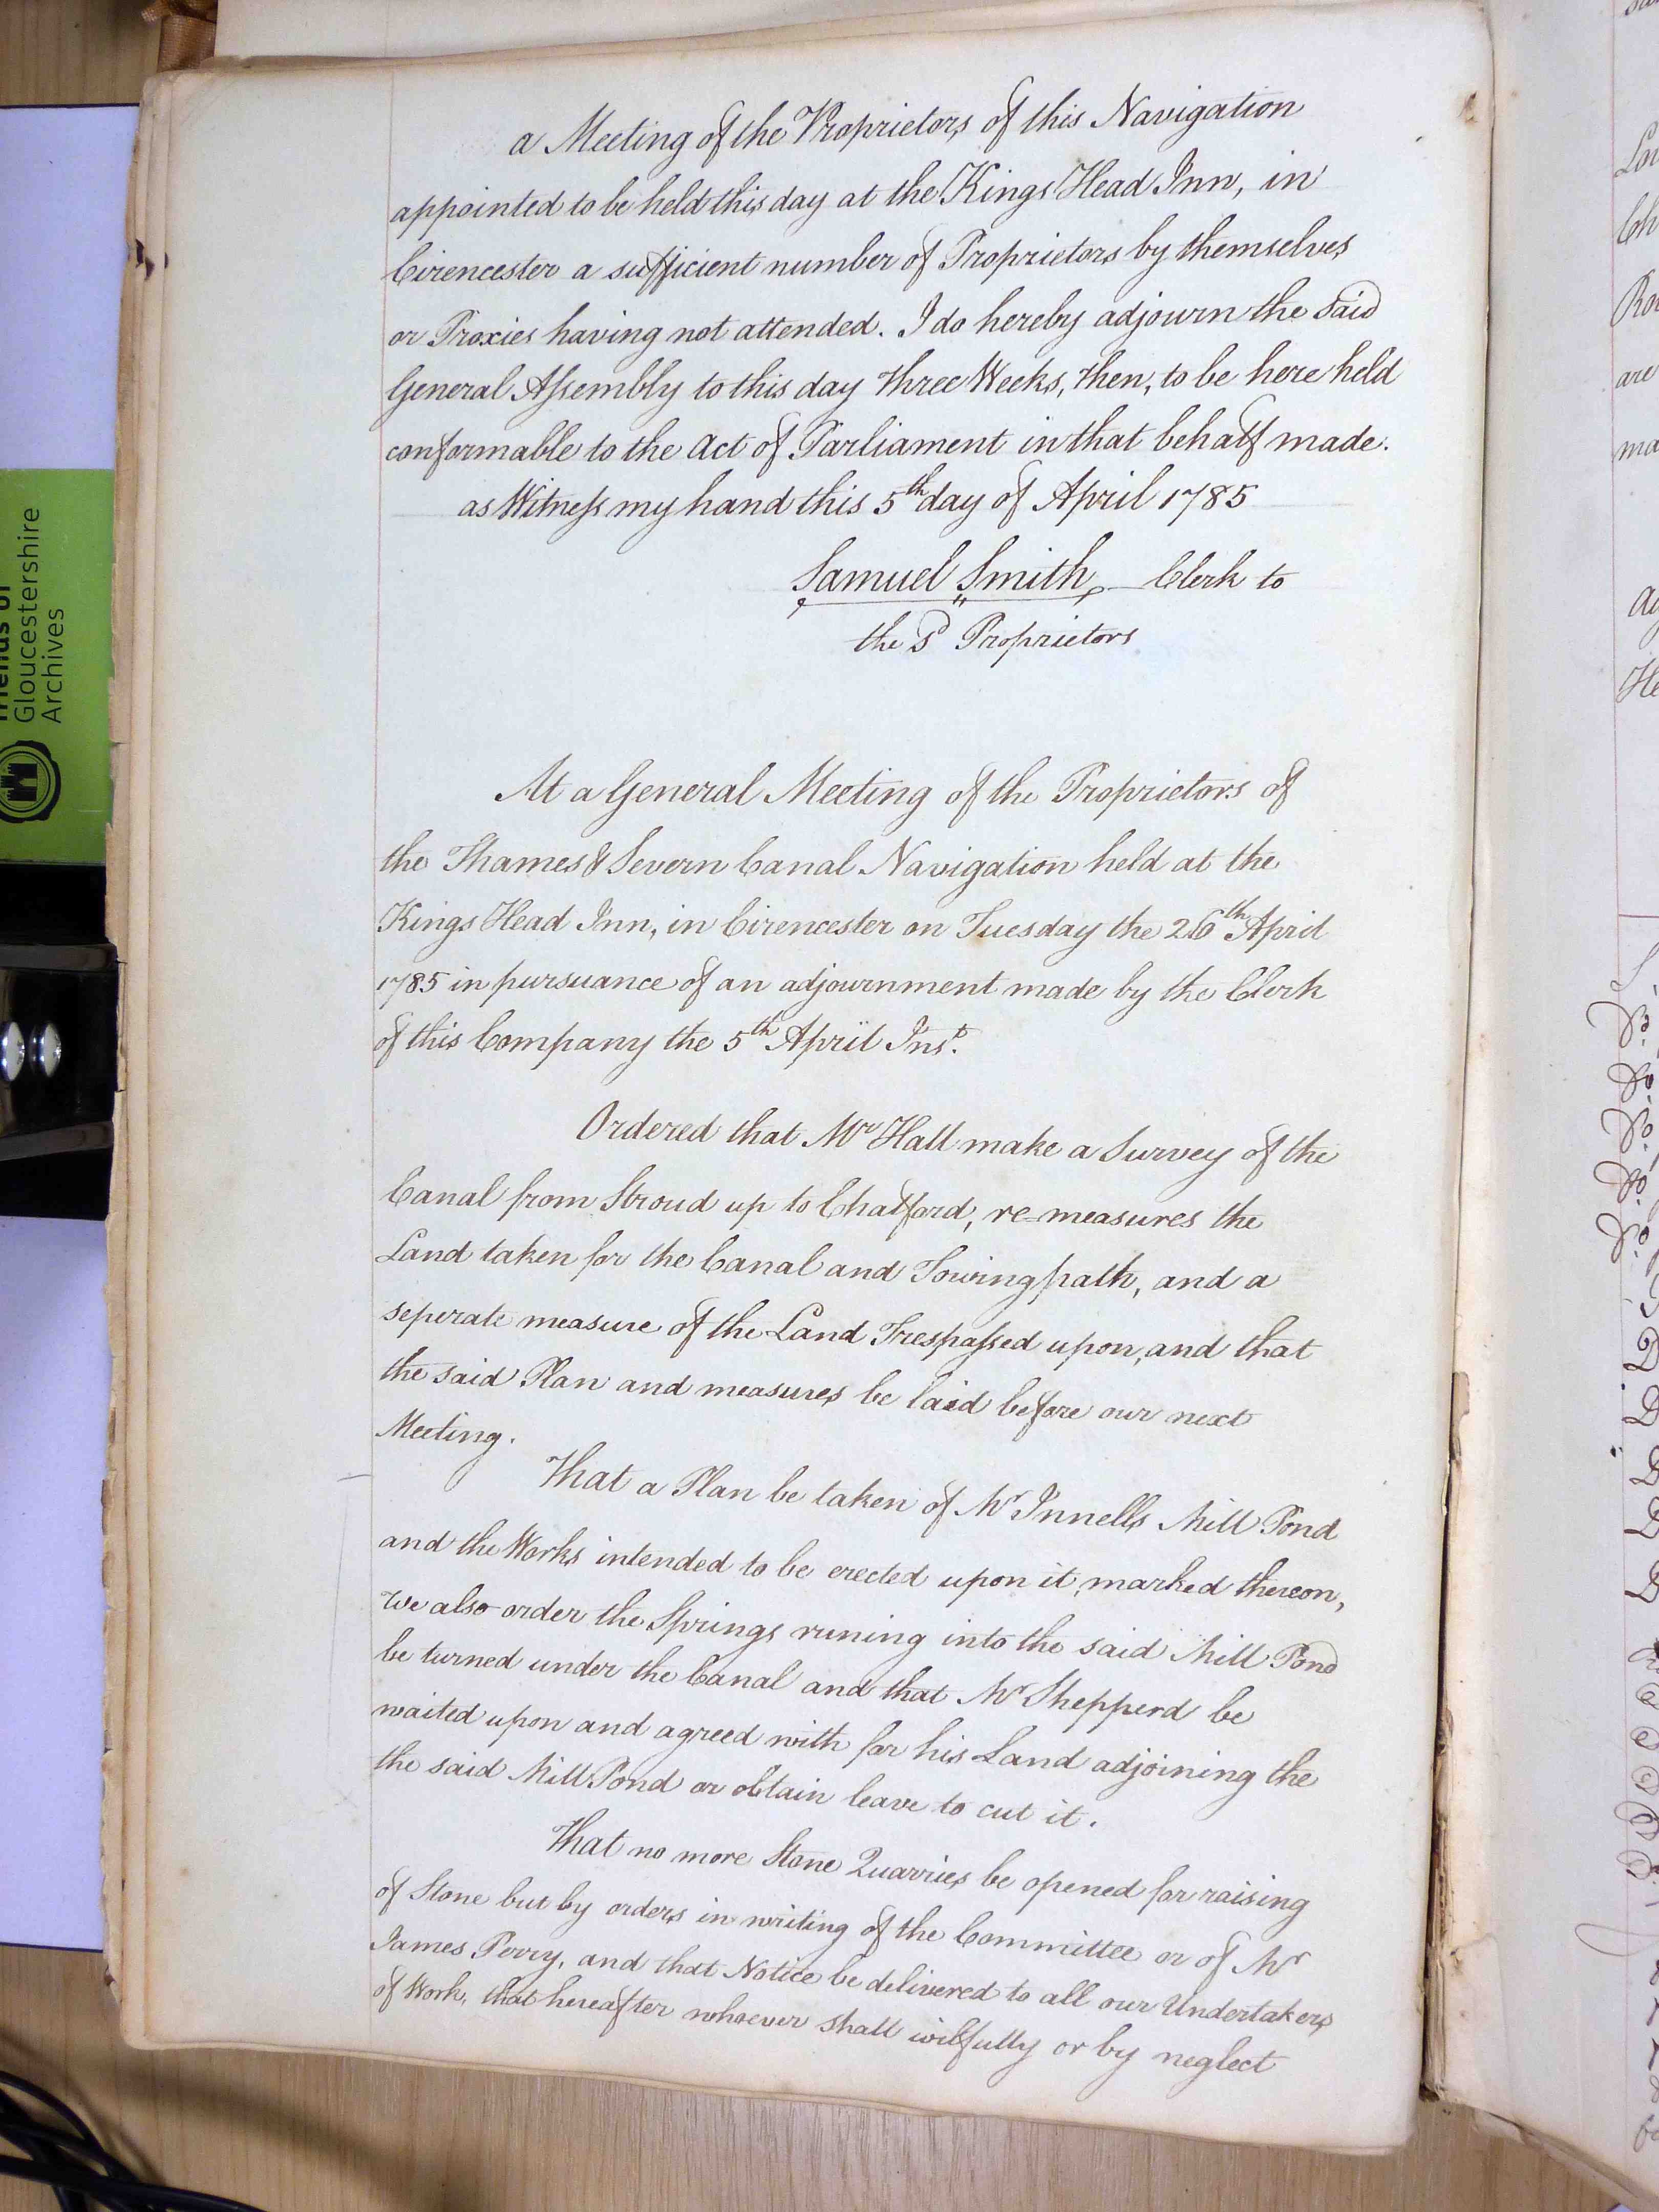 a Meeting of the Proprietors of this Navigation
appointed to be held this day at the Kings Head Inn, in
Cirencester a sufficient number of Proprietors by themselves
or Proxies having not attended. I do hereby adjourn the said
General Assembly to this day three Weeks, then, to be here held
conformable to the Act of Parliament in that behalf made.
as Witness my hand this 5th day of April 1785
Samuel Smith, Clerk to
the sd Proprietors
At a General Meeting of the Proprietors of
the Thames & Severn Canal Navigation held at the
Kings Head Inn, in Cirencester on Tuesday the 26th April
1785 in pursuance of an adjournment made by the Clerk
of this Company the 5th April Inst.
Ordered that Mr Hall make a Survey of the
Canal from Stroud up to Chalford, re=measures the
Land taken for the Canal and Towingpath, and a
seperate measure of the Land Trespassed upon, and that
the said Plan and measures be laid before our next
Meeting.
That a Plan be taken of Mr Innells Mill Pond
and the Works intended to be erected upon it, marked thereon,
we also order the Springs runing into the said Mill Pond
be turned under the Canal and that Mr Shepperd be
waited upon and agreed with for his Land adjoining the
the said Mill Pond or obtain leave to cut it.
That no more Stone Quarries be opened for raising
of Stone but by orders in writing of the Committee or of Mr
James Perry, and that Notice be delivered to all our Undertakers
of Work, that hereafter whoever shall wilfully or by neglect
Gloucestershire
Archives